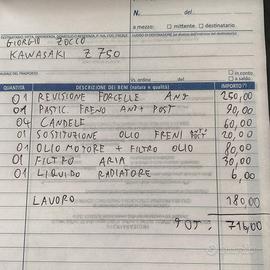 a mezzo: mittente destinatario
GIORGIO ZOCCO
KAWASAKI Z 750
in ordine
in conto
a saldo
QUANTITÀ DESCRIZIONE DEI BENI (natura e qualità) IMPORTO (*)
01 REVISIONE FORCELLE ANT 250,00
01 PASTIC FRENO ANT+ POST 90,00
04 CANDELE 60,00
01 SOSTITUZIONE OLIO FRENI 20,00
01 OLIO MOTORE + FILTRO OLIO 80,00
01 FILTRO ARIA 30,00
01 LIQUIDO RADIATORE 6,00
LAVORO 180,00
TOT: 716,00
subito.it